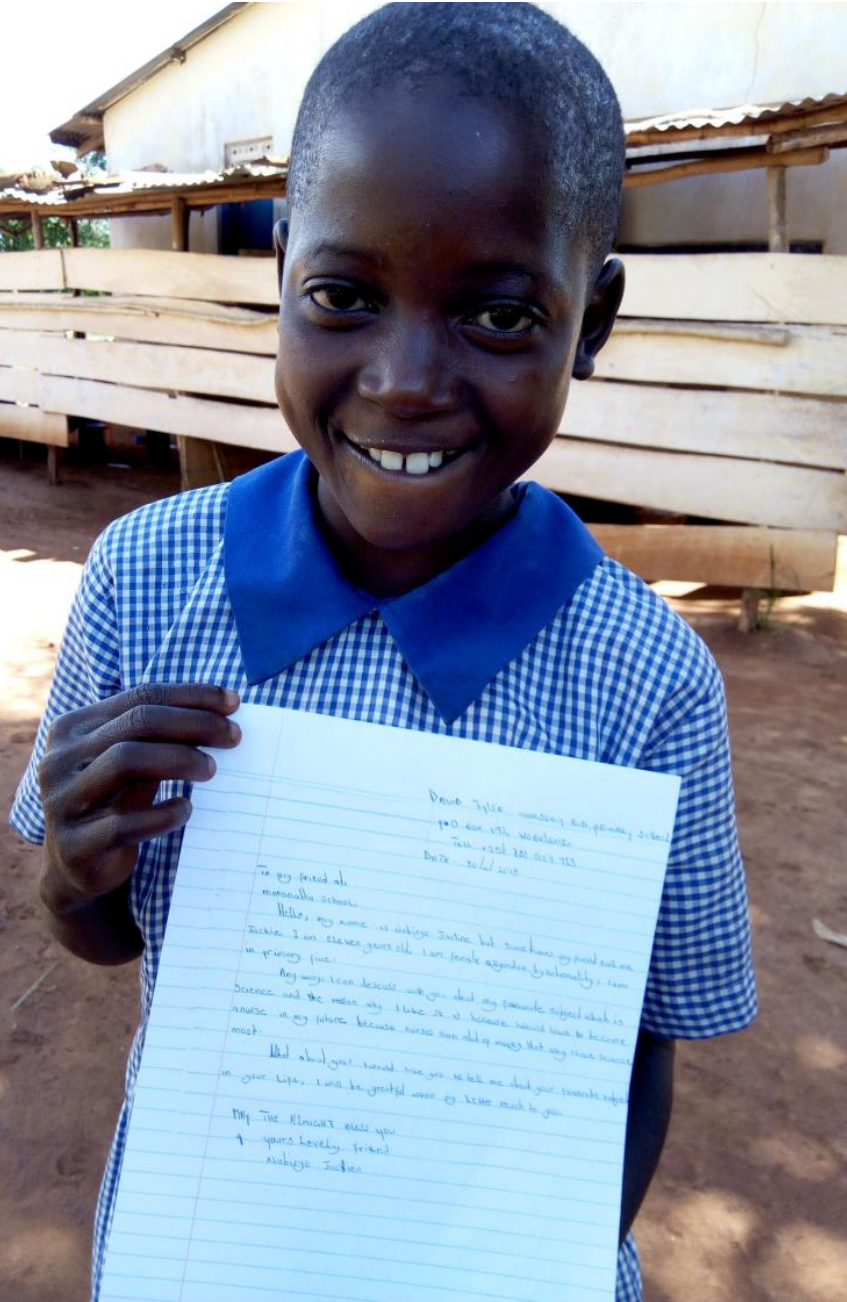 DAVID Tylza NURSERY AND primary School
P.O BOX
Tell: +256
DATE: 30/ /2015
To my friend at
maranatha School.
Hello, my name is Nabirye Jackline but sometimes my friend call me
Jackie I am eleven years old. I am female ugandan by nationality, I am
in primary five.
Any way, I can discuss with you about my favourate subject which is
Science and the reason why I like it is because would have to become
a nurse in my future because nurses earn alot of money that why I love science
most.
What about you? I would love you to tell me about your favourate subject
in your life, I will be greatful when my letter reach to you.
MAy THE AlMIGHT Bless you
yours Lovely friend